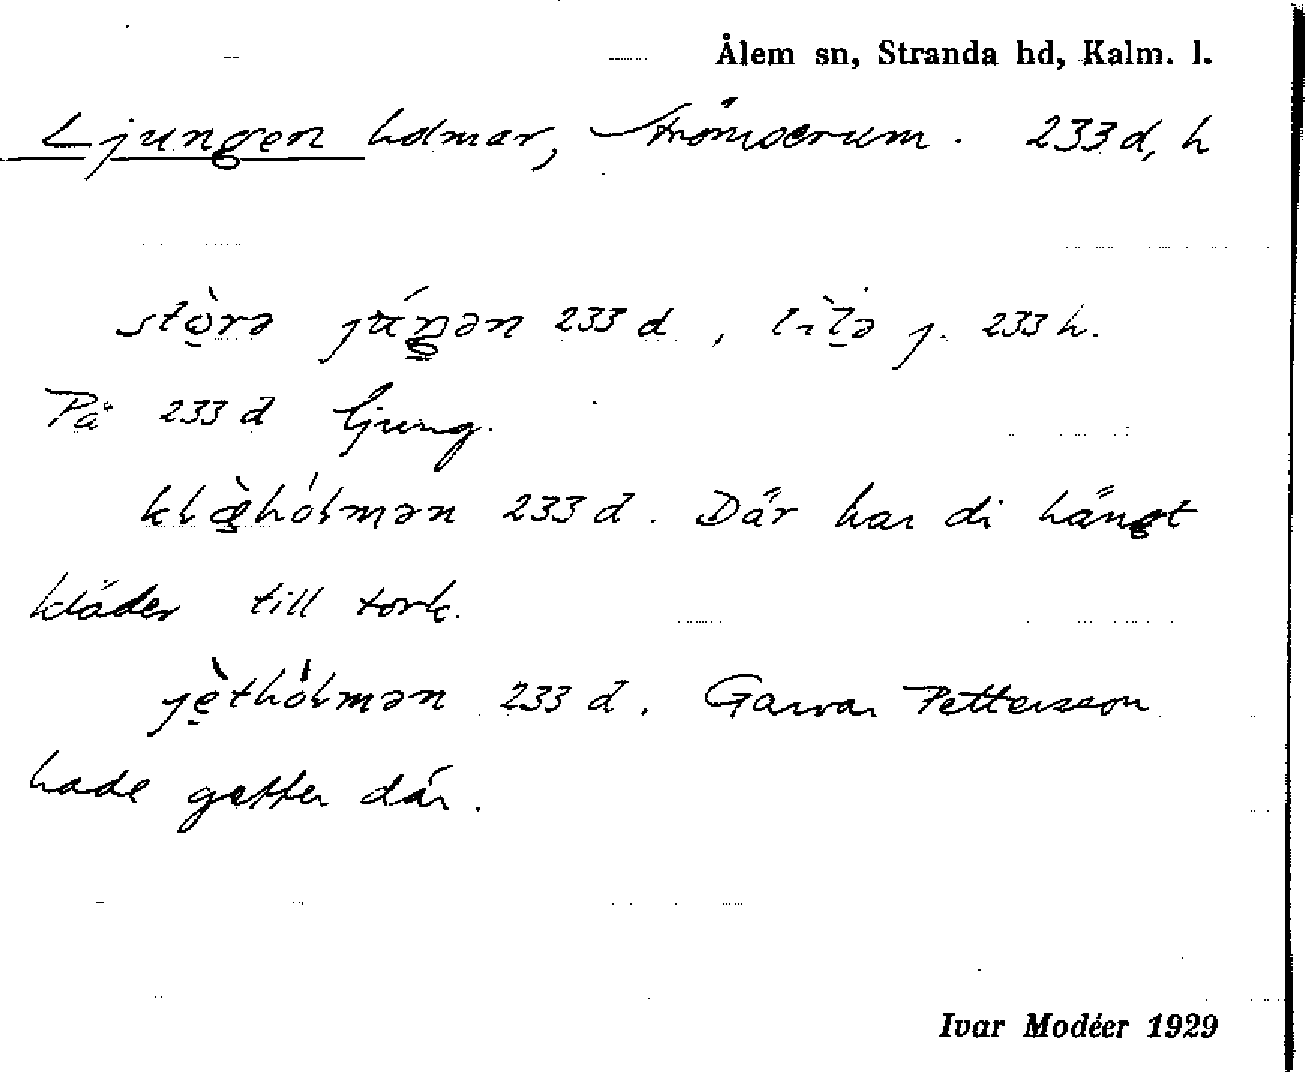 Ålem sn, Stranda hd, Kalm. l.
Ljungen holmar, Strömserum. 233 d, h
stò̱rə júŋən 233 d, lìlə j. 233 h.
På 233 d ljung.
klæ̀hólmən 233 d. Där har di hängt
kläder till tork.
jèthólmən 233 d. Garvar Pettersson
hade getter där.
Ivar Modéer 1929